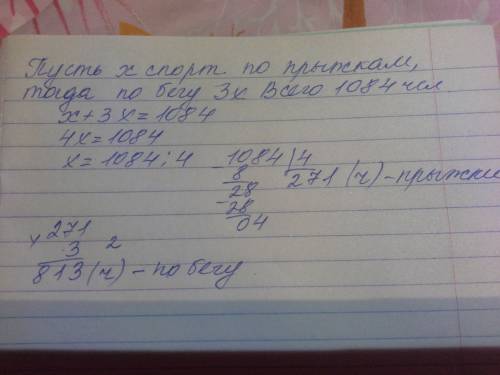 Пусть х спорт. по прыжкам,
тогда по бегу 3х Всего 1084 чел.
х+3х=1084
4х=1084
х=1084:4
1084|4
- 8
271 (ч) - прыжки
28
- 28
04
х 271
3 2
813 (ч) - по бегу